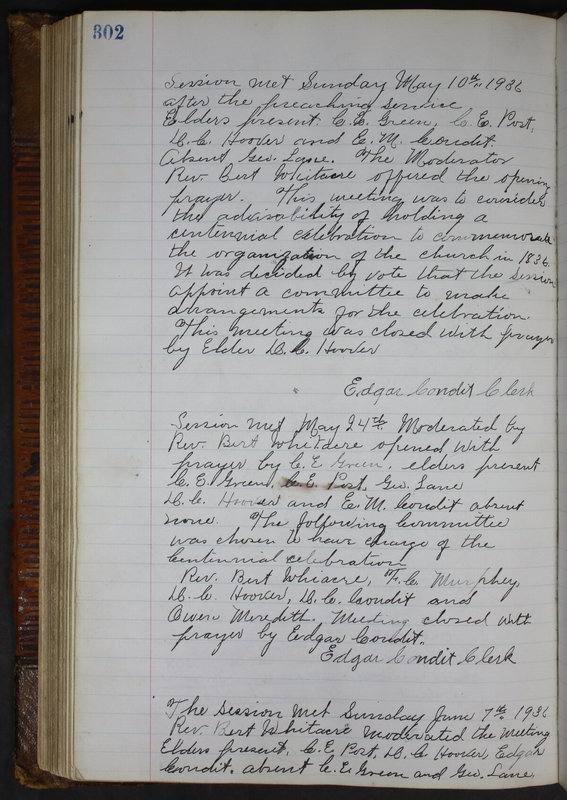 302
Session met Sunday May 10th 1936
after the preaching service
Elders present: C.E. Green, C.E. Post,
D.C. Hoover and E.M. Condit.
Absent Geo. Lane. The Moderator
Rev. Bert Whitacre offered the opening
prayer. This meeting was to consider
the advisability of holding a
centennial celebration to commemorate
the organization of the church in 1836.
It was decided by vote that the session
appoint a committee to make
arrangements for the celebration.
This meeting was closed with prayer
by Elder D.C. Hoover
Edgar Condit Clerk
Session met May 24th. Moderated by
Rev. Bert Whitacre opened with
prayer by C.E. Green. elders present
C.E. Green, C.E. Post, Geo. Lane
D.C. Hoover and E.M. Condit absent
none. The following Committee
was chosen to have charge of the
Centennial celebration
Rev. Bert Whiacre, F.C. Murphey,
D.C. Hoover, D.C. Condit and
Owen Meredith. Meeting closed with
prayer by Edgar Condit.
Edgar Condit Clerk
The Session met Sunday June 7th 1936
Rev. Bert Whitacre moderated the meeting
Elders present, C.E. Post, D.C. Hoover, Edgar
Condit. absent C.E. Green and Geo. Lane,